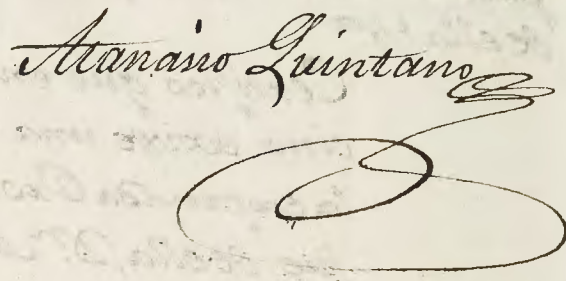 Atanasio Quintano